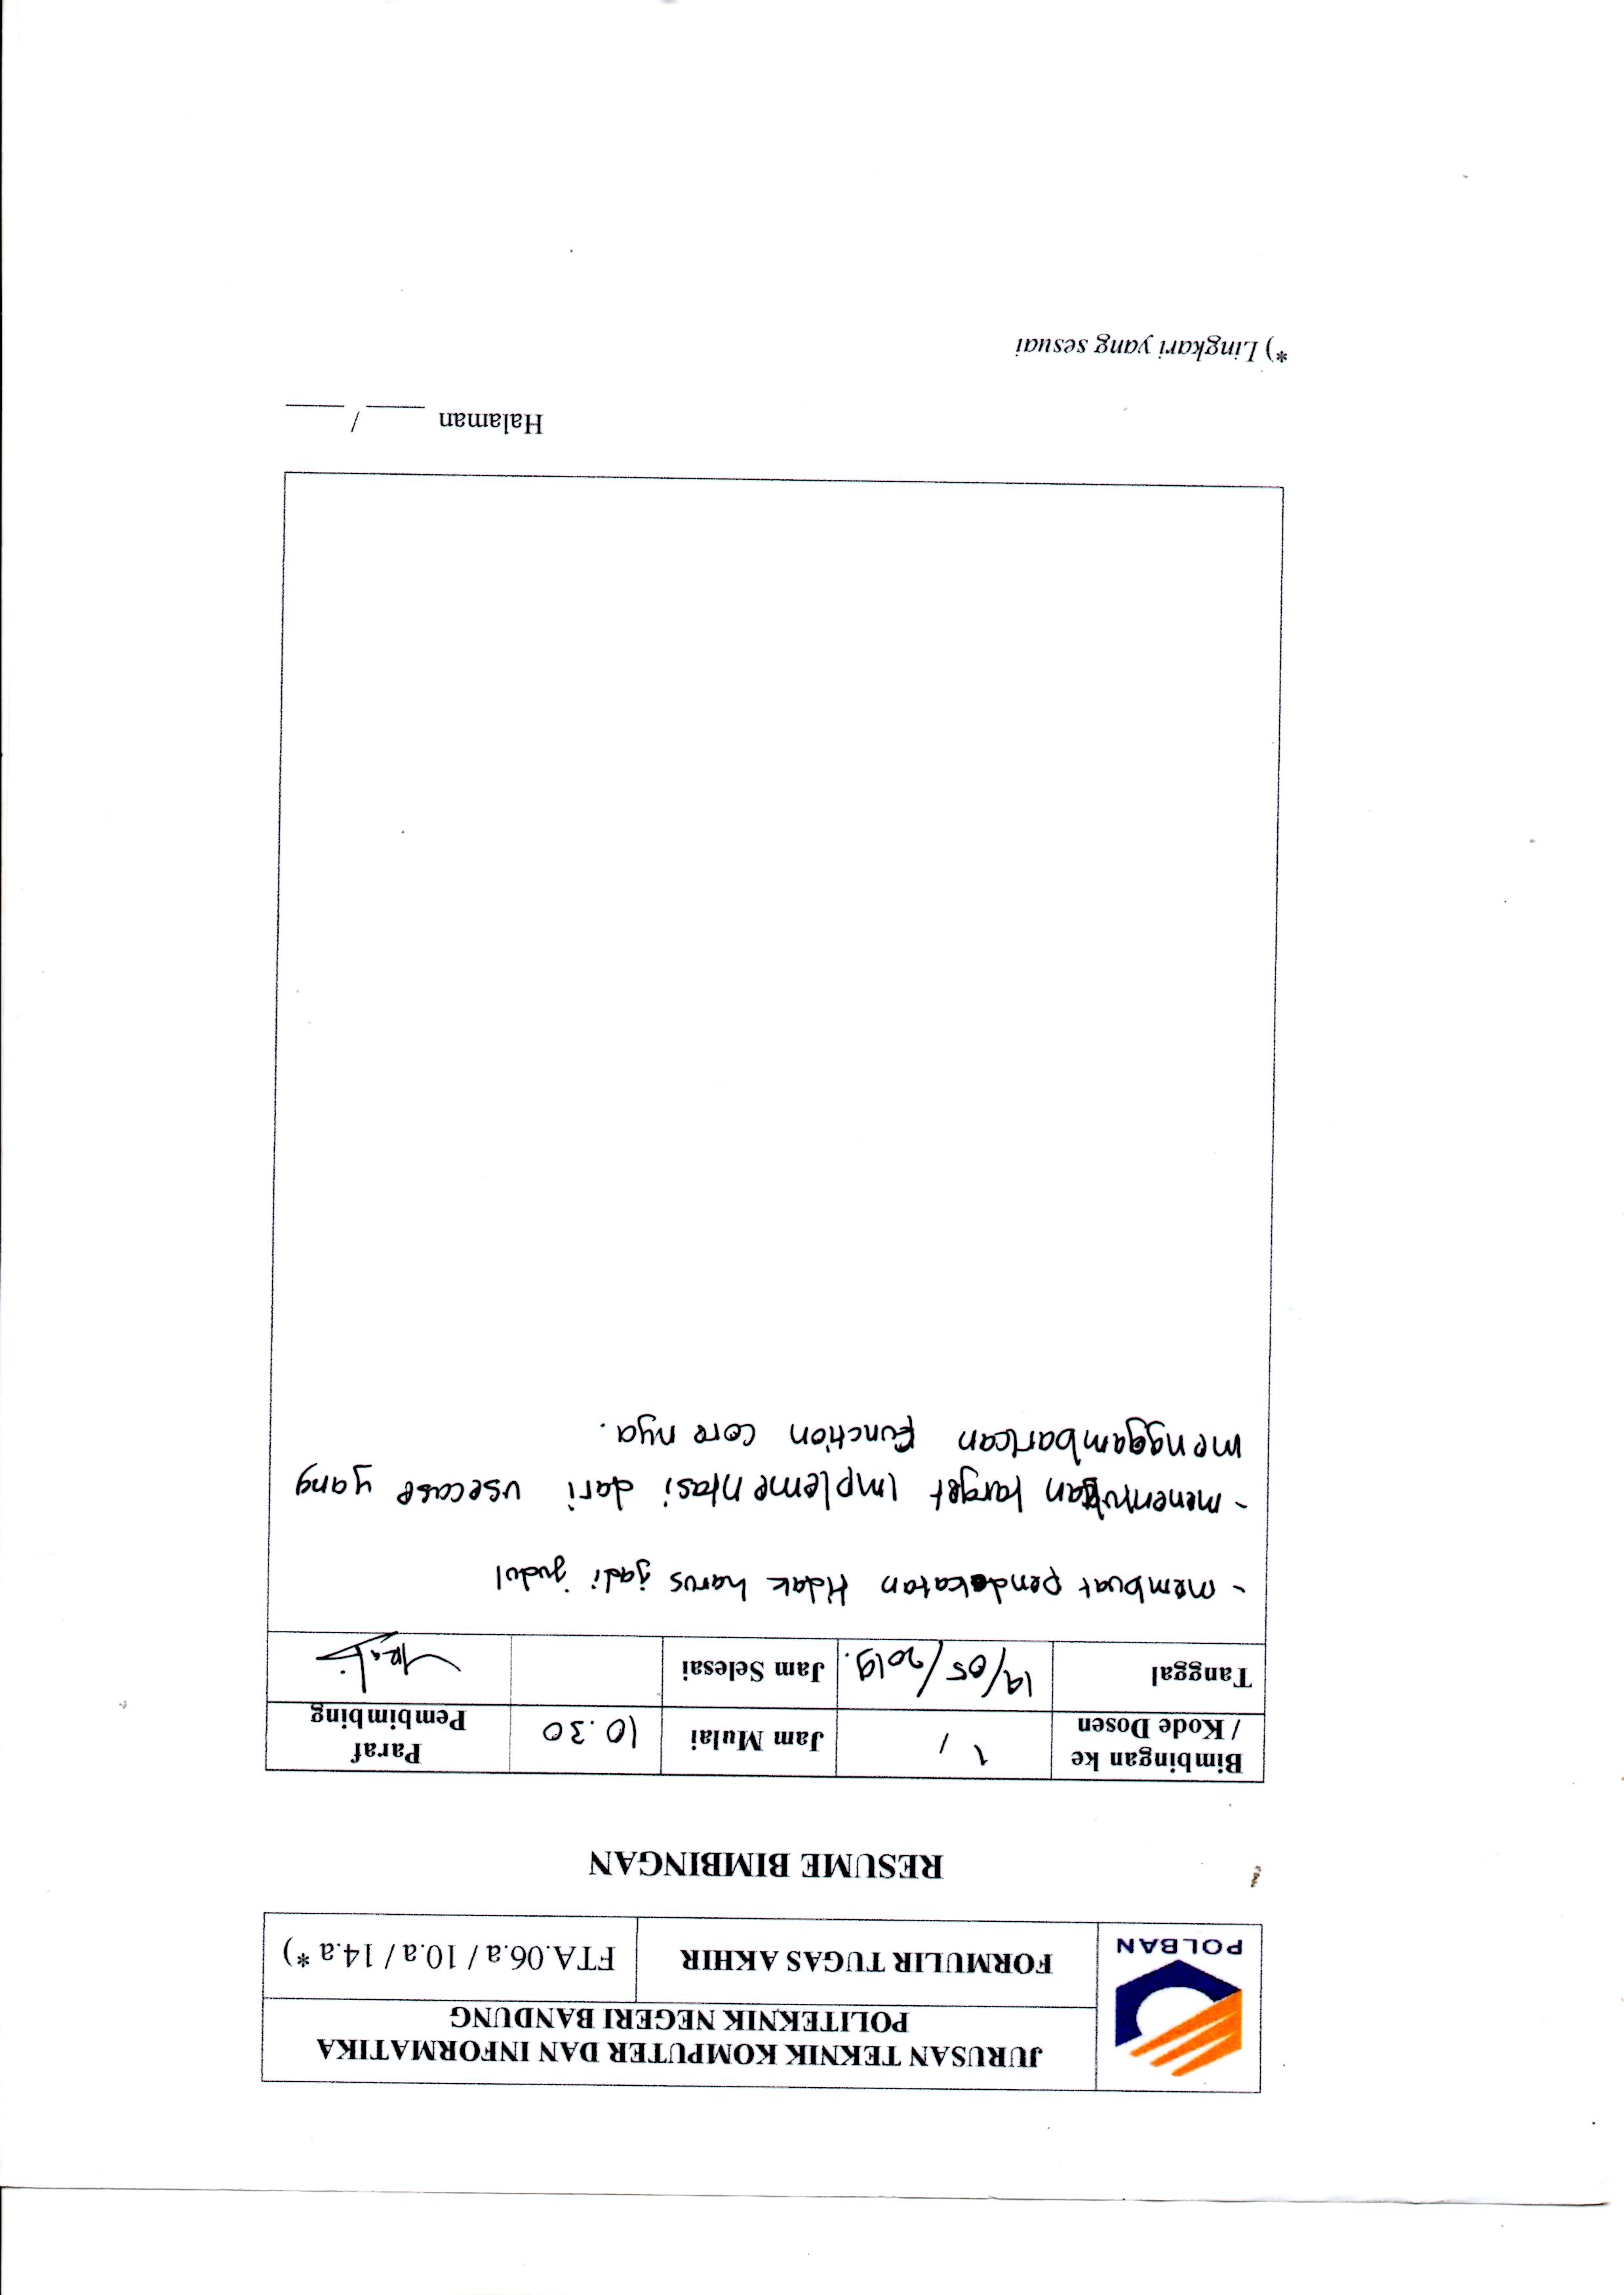 POLBAN
JURUSAN TEKNIK KOMPUTER DAN INFORMATIKA
POLITEKNIK NEGERI BANDUNG
FORMULIR TUGAS AKHIR
FTA.06.a / 10.a / 14.a *)
RESUME BIMBINGAN
Bimbingan ke
/ Kode Dosen
1 /
Jam Mulai
10.30
Paraf
Pembimbing
Tanggal
19/05/2019.
Jam Selesai
- membuat pendekatan tidak harus jadi judul
- menentukan target implementasi dari usecase yang
menggambarkan function core nya.
Halaman ____ / ____
*) Lingkari yang sesuai